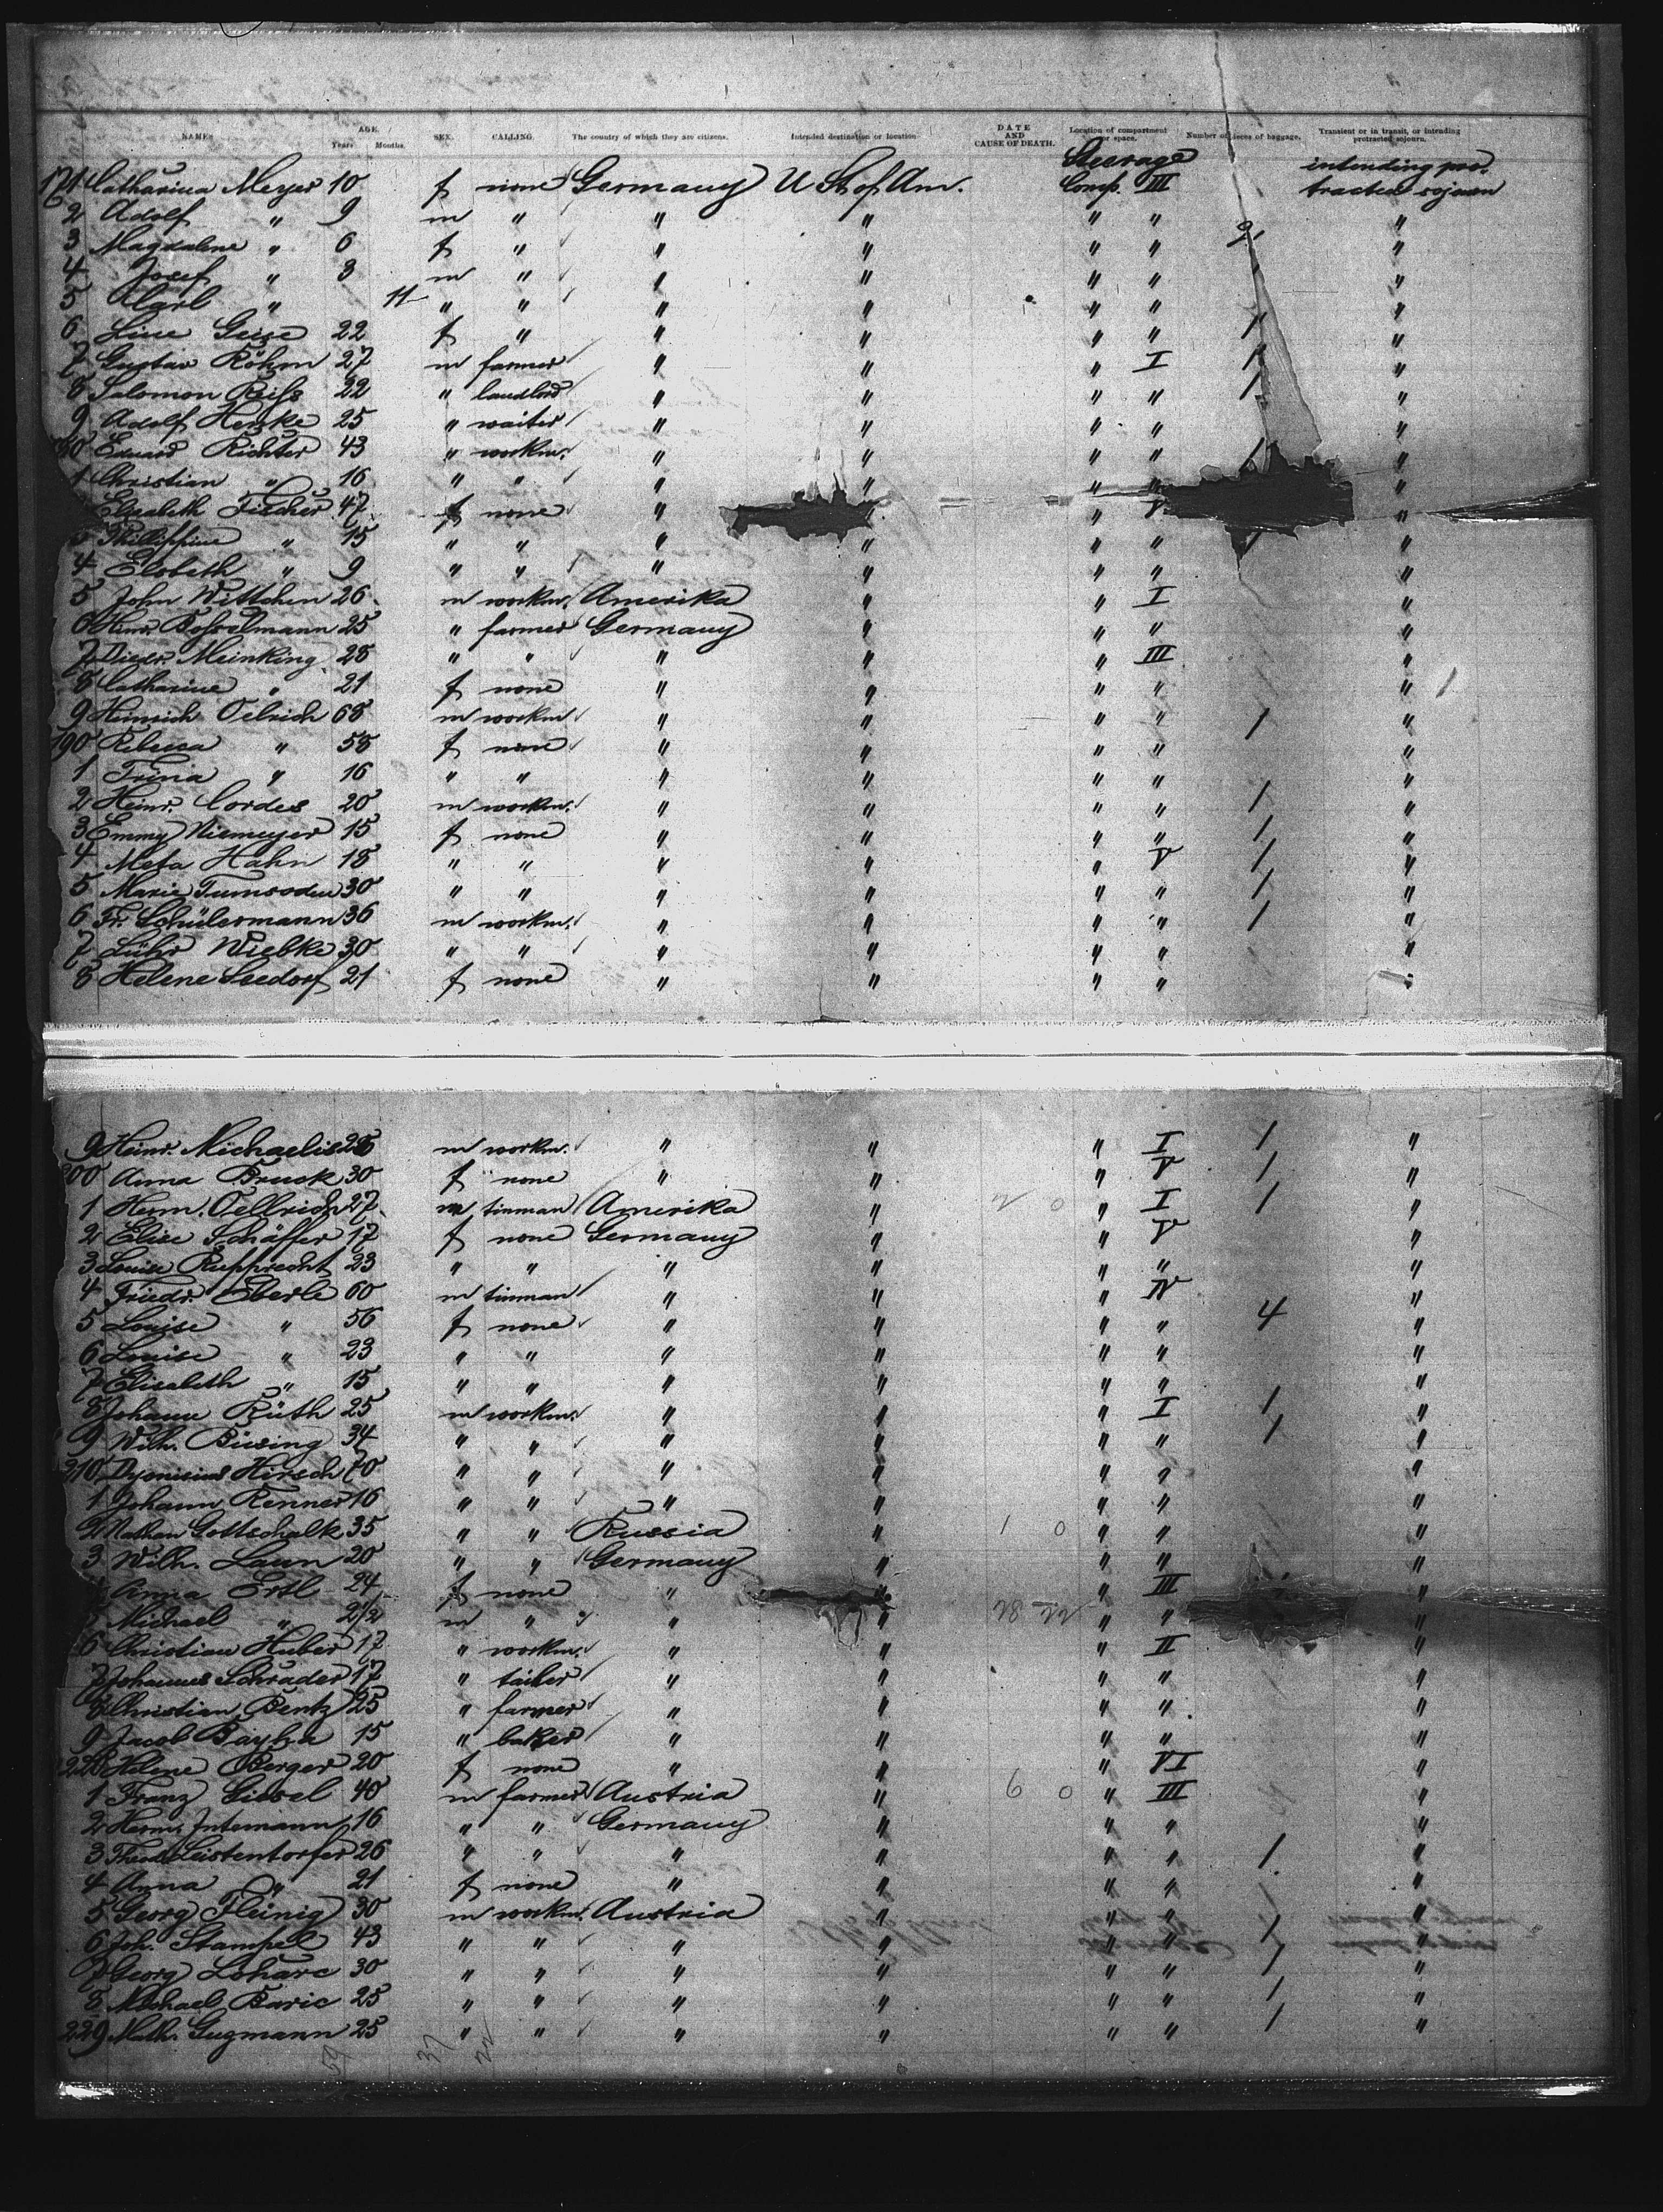 NAMES AGE. Years Months. SEX. CALLING. The country of which they are citizens. Intended destination or location DATE AND CAUSE OF DEATH. Location of compartment or space. Number of pieces of baggage. Transient or in transit, or intending protracted sojourn.
Steerage intending pro-
171 Catharina Meyer 10 f none Germany U St of Am. Comp. III tracted sojourn
2 Adolf " 9 m " " " " " "
3 Magdalene " 6 f " " " " " 2 "
4 Josef " 3 m " " " " " "
5 Carl " 11 " " " " " " "
6 Line Geise 22 f " " " " " 1 "
7 Gustav Röhm 27 m farmer " " " I 1 "
8 Salomon Reiss 22 " landlord " " " " 1 "
9 Adolf Henke 25 " waiter " " " " "
80 Eduard Richter 43 " workm. " " " " 1 "
1 Christian " 16 " " " " " " "
Elisabeth Fischer 47 f none " " " V "
3 Phillippine " 15 " " " " " " 1 "
4 Elsbeth " 9 " " " " " " "
5 John Wittchen 26 m workm. Amerika " " I "
6 Heinr. Bosselmann 25 " farmer Germany " " " "
7 Diedr. Meinking 28 " " " " " III "
8 Catharine " 21 f none " " " " " 1
9 Heinrich Oelrich 68 m workm. " " " " 1 "
190 Rebecca " 58 f none " " " " "
1 Trina " 16 " " " " " " "
2 Heinr. Cordes 20 m workm. " " " " 1 "
3 Emmy Niemeyer 15 f none " " " " 1 "
4 Meta Hahn 18 " " " " " V 1 "
5 Marie 30 " " " " " " 1 "
6 Fr. Schülermann 36 m workm. " " " " 1 "
7 Lühr Wiebke 30 " " " " " " "
8 Helene Seedorf 21 f none " " " " "
9 Heinr. Michaelis m workm. " " " I 1 "
200 Anna Bruck 30 f none " " " V 1 "
1 Herm. Oellrich 27 m tinman Amerika " " I 1 "
2 Elise Schäffer 17 f none Germany " " V "
3 Louise Rupprecht 23 " " " " " " "
4 Friedr. Eberle 60 m tinman " " " IV "
5 Louise " 56 f none " " " " 4 "
6 Louise " 23 " " " " " " "
7 Elisabeth " 15 " " " " " " "
8 Johann Rüth 25 m workm. " " " I 1 "
9 Wilh. Büsing 34 " " " " " " 1 "
210 Dyonisius Hirsch 70 " " " " " " "
1 Johann Renner 16 " " " " " " "
2 Nathan Gottschalk 35 " " Russia " 1 0 " " "
3 Wilh. Laun 20 " " Germany " " " "
Anna Ertl 24 f none " " " III "
5 Michael " 2 1/2 m " " " " " "
6 Christian Huber 17 " workm. " " " II "
7 Johannes Schrader 17 " tailer " " " " "
8 Christian Bentz 25 " farmer " " " " "
9 Jacob 15 " baker " " " " "
220 Helene Berger 20 f none " " " VI "
1 Franz Giesel 40 m farmer Austria " 6 0 " III "
2 Herm. Intemann 16 " " Germany " " " "
3 Theod. Leistentorfer 26 " " " " " " 1 "
4 Anna " 21 f none " " " " "
5 Georg Fleinig 30 m workm. Austria " " " 1 "
6 Joh. Stampfel 43 " " " " " " 1 "
7 Georg 30 " " " " " " 1 "
8 Michael Baric 25 " " " " " " 1 "
229 Math. Gugmann 25 " " " " " " 1 "
59 37 22